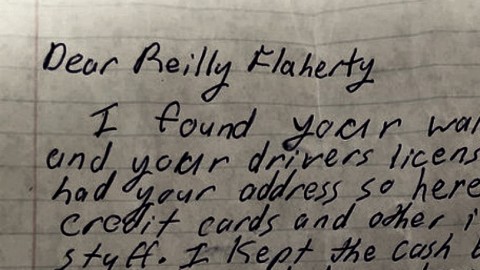 Dear Reilly Flaherty
I found your
and your drivers
had your address so here
credit cards and other
stuff. I kept the cash